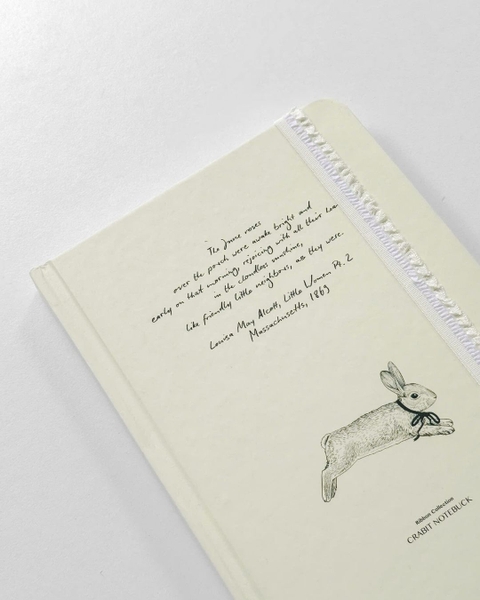 The June roses
over the porch were awake bright and
early on that morning, rejoicing with all their
in the cloudless sunshine,
like friendly little neighbors, as they were.
Louisa May Alcott, Little Women Pt. 2
Massachusetts, 1869
Ribbon Collection
CRABIT NOTEBUCK